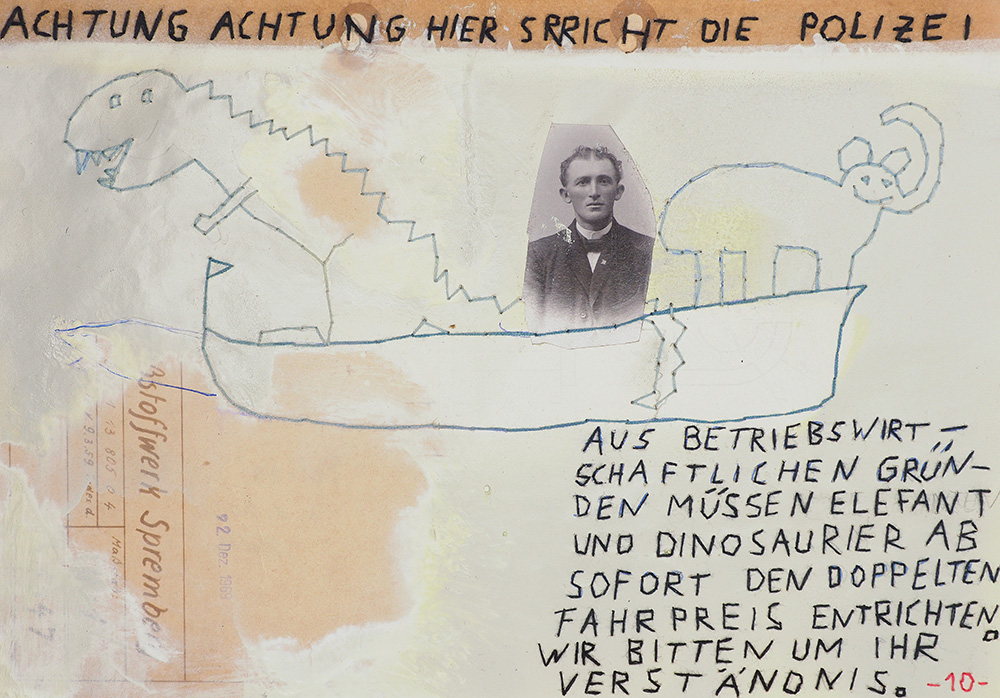 ACHTUNG ACHTUNG HIER SRRICHT DIE POLIZEI
AUS BETRIEBSWIRT-
SCHAFTLICHEN GRÜN-
DEN MÜSSEN ELEFANT
UND DINOSAURIER AB
SOFORT DEN DOPPELTEN
FAHRPREIS ENTRICHTEN.
WIR BITTEN UM IHR
VERSTÄNDNIS. -10-
stoffwerk Sprember